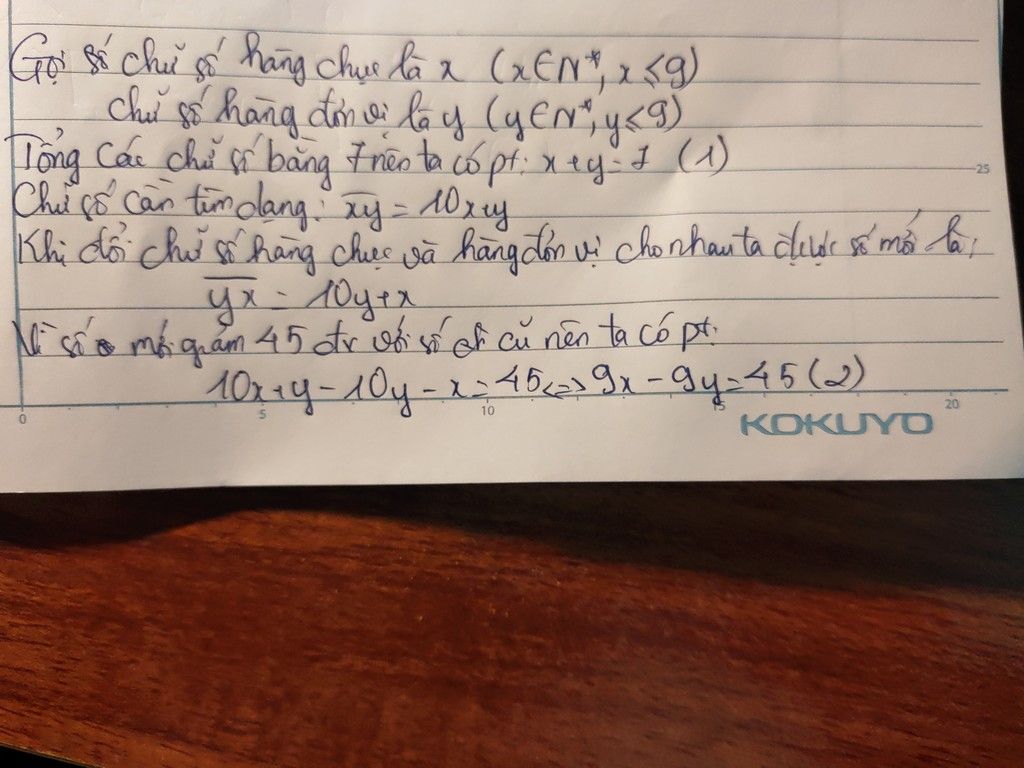 Gọi số chữ số hàng chục là x (x∈N*, x≤9)
chữ số hàng đơn vị là y (y∈N*, y≤9)
Tổng các chữ số bằng 7 nên ta có pt: x+y=7 (1)
25
Chữ số cần tìm dạng: x̅y̅ = 10x+y
Khi đổi chữ số hàng chục và hàng đơn vị cho nhau ta được số mới là:
y̅x̅ = 10y+x
Vì số mới giảm 45 đv với số cũ nên ta có pt:
10x+y-10y-x=45<=>9x-9y=45 (2)
0 5 10 15 20
KOKUYO